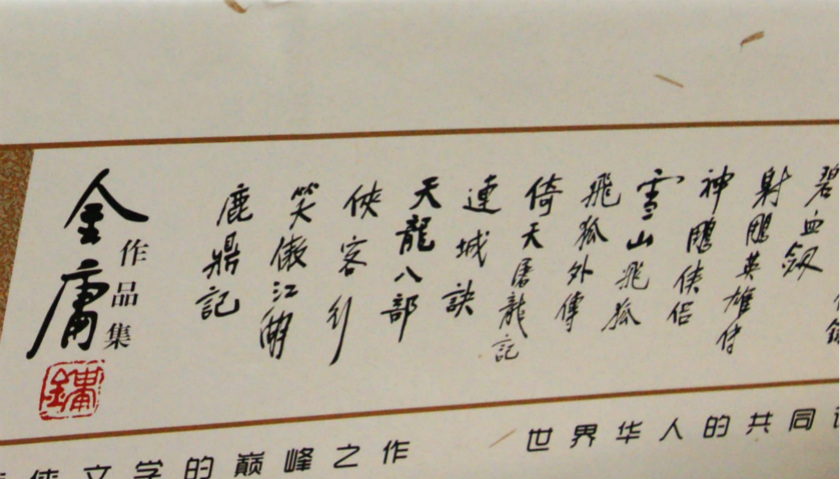 碧血劍
射鵰英雄传
神鵰俠侣
雪山飛狐
飛狐外傳
倚天屠龍記
連城訣
天龍八部
俠客行
笑傲江湖
鹿鼎記
金庸
作品集
鏞
侠文学的巅峰之作
世界华人的共同